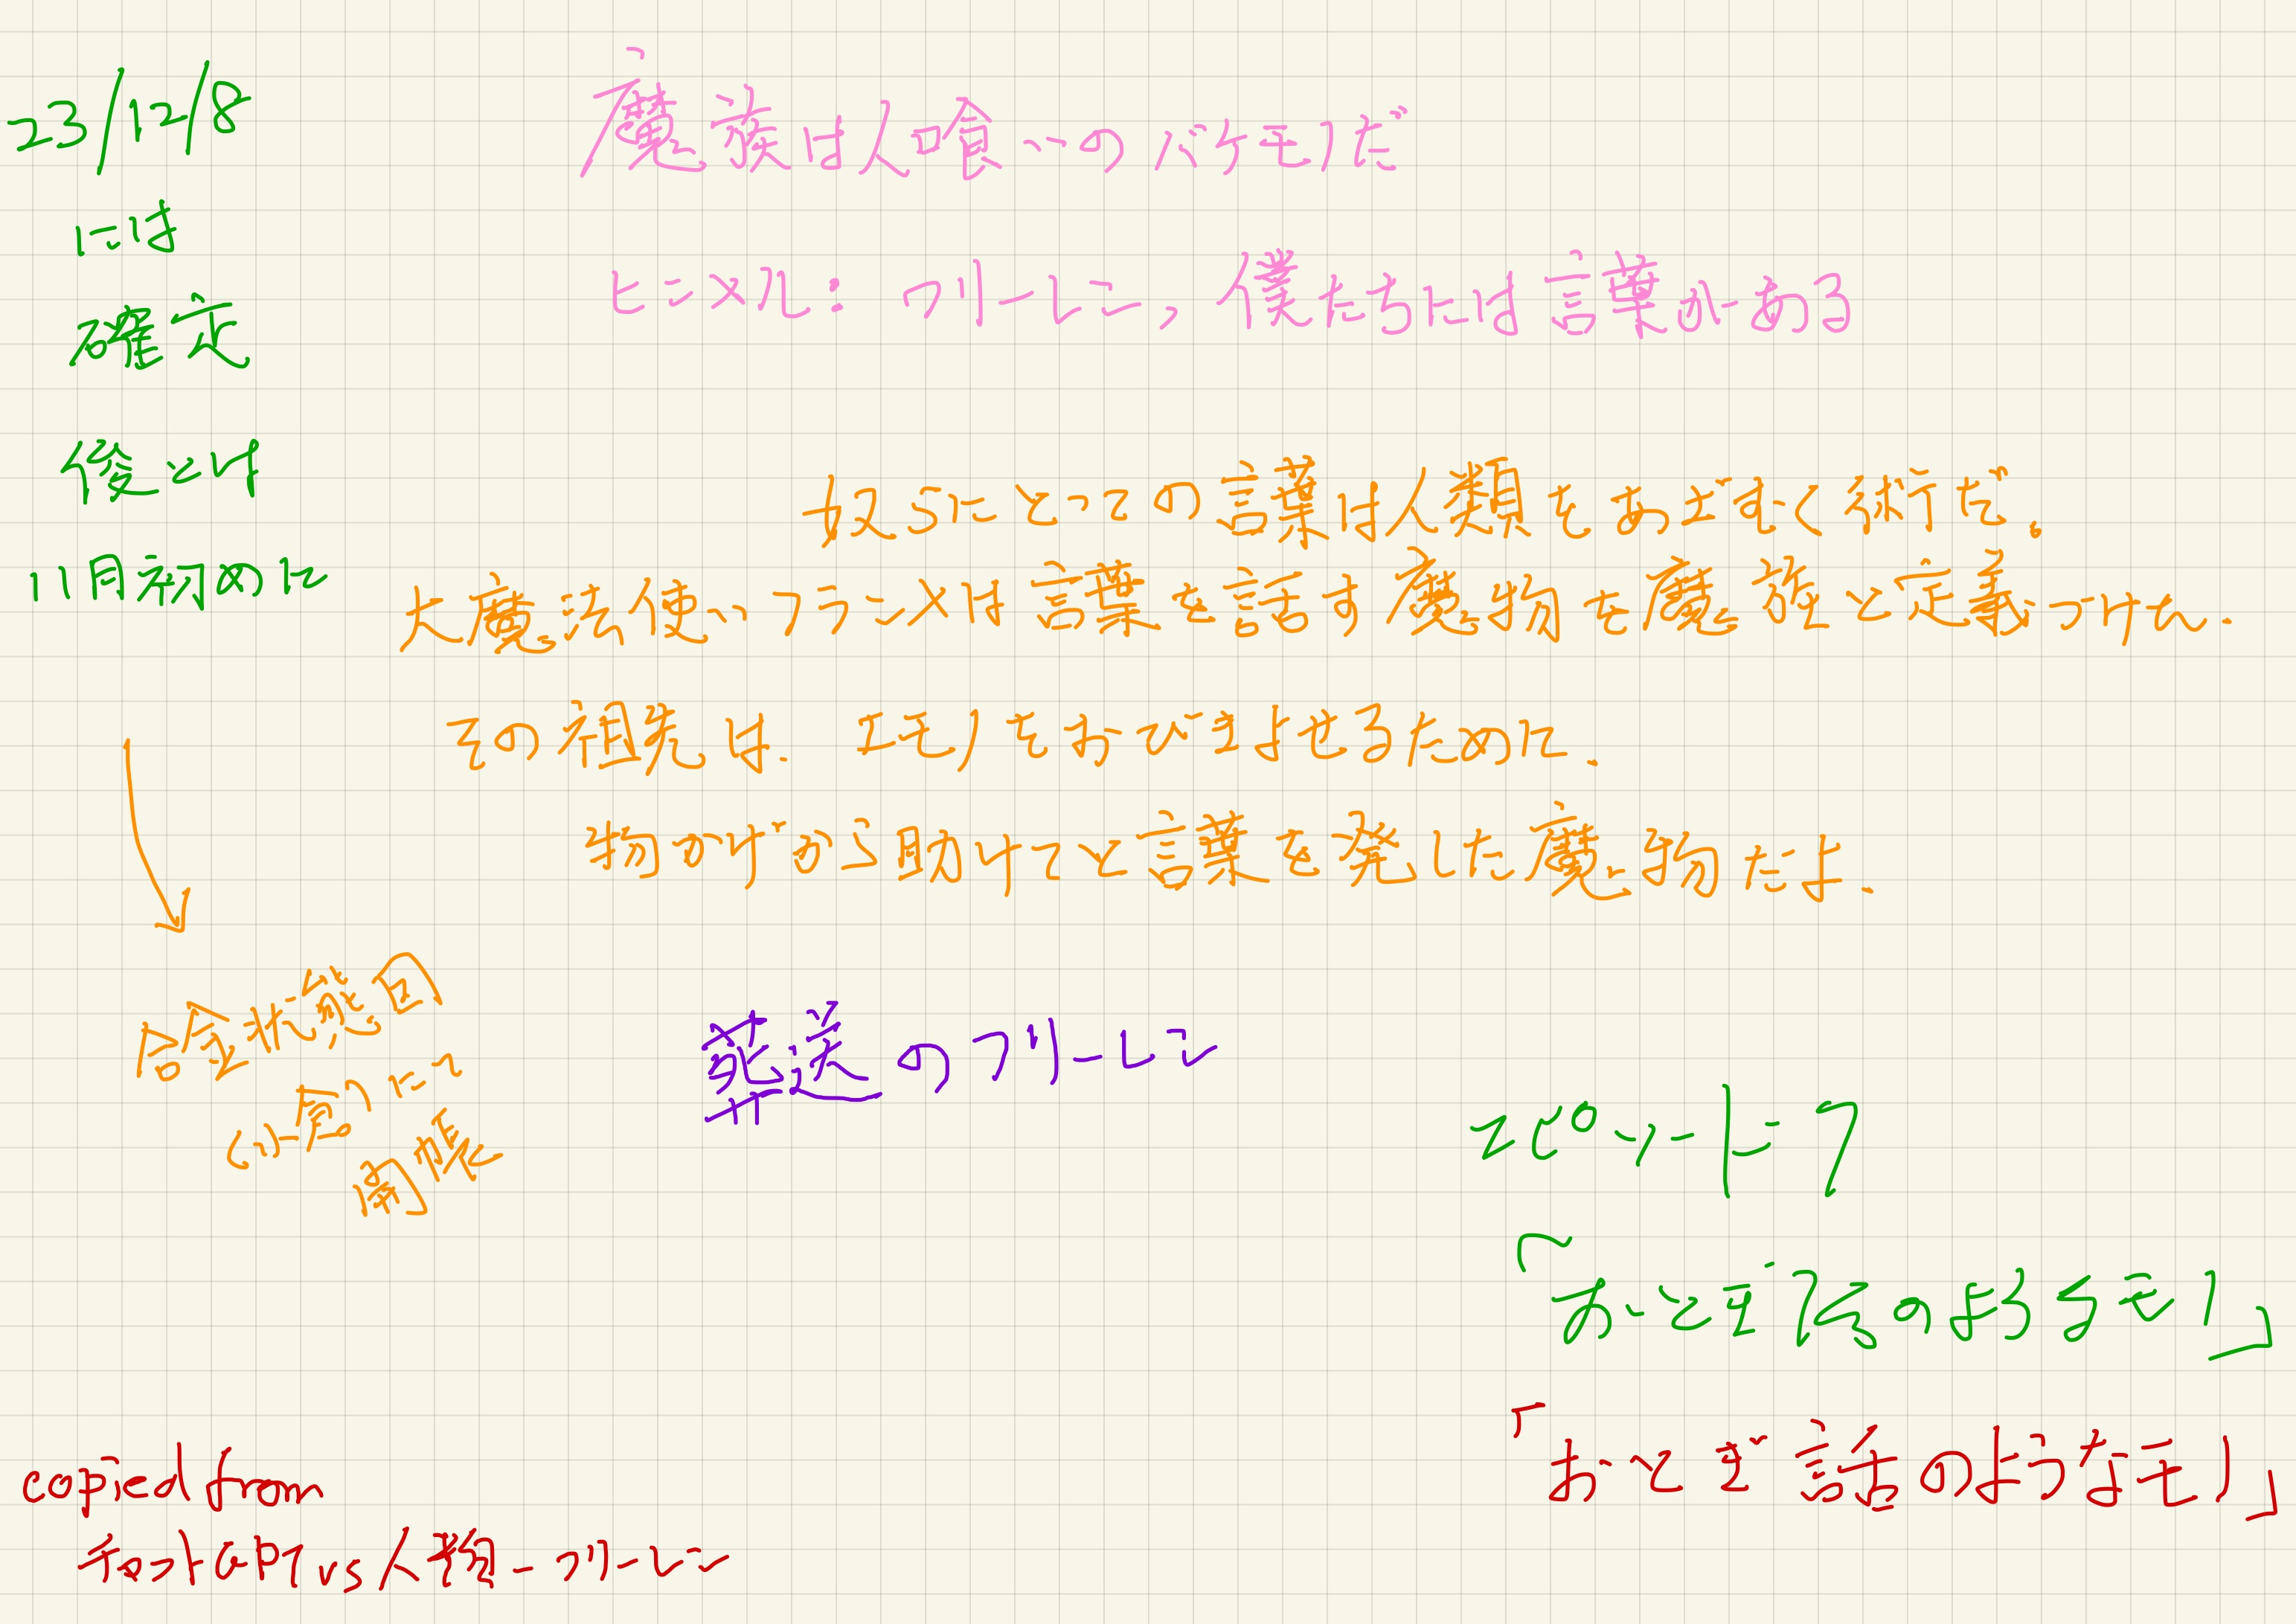 23/12/8
には
確定
俊とけ
11月初めに
魔族は人喰いのバケモノだ
ヒンメル：フリーレン，僕たちには言葉がある
奴らにとっての言葉は人類をあざむく術だ．
大魔法使いフランメは言葉を話す魔物を魔族と定義つけた．
その祖先は．エモノをおびきよせるために．
物かげから助けてと言葉を発した魔物だよ．
合会状態図
(小倉)にて
開帳
葬送のフリーレン
「
のようなモノ」
「
おとぎ話のようなモノ」
copied from
チャットGPT vs 人類－フリーレン